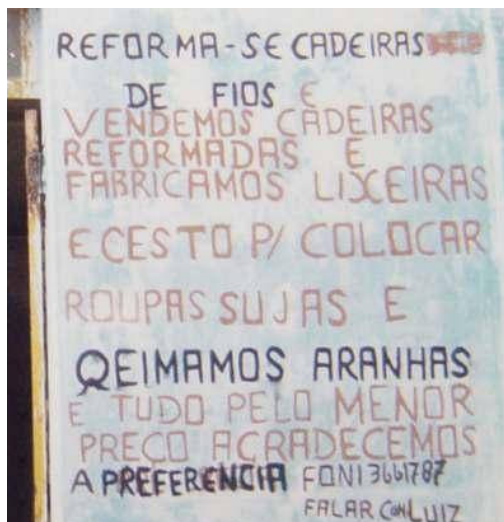 REFORMA-SE CADEIRAS
DE FIOS E
VENDEMOS CADEIRAS
REFORMADAS E
FABRICAMOS LIXEIRAS
E CESTO P/ COLOCAR
ROUPAS SUJAS E
QEIMAMOS ARANHAS
E TUDO PELO MENOR
PREÇO AGRADECEMOS
A PREFERENCIA FONI 3661787
FALAR CON LUIZ